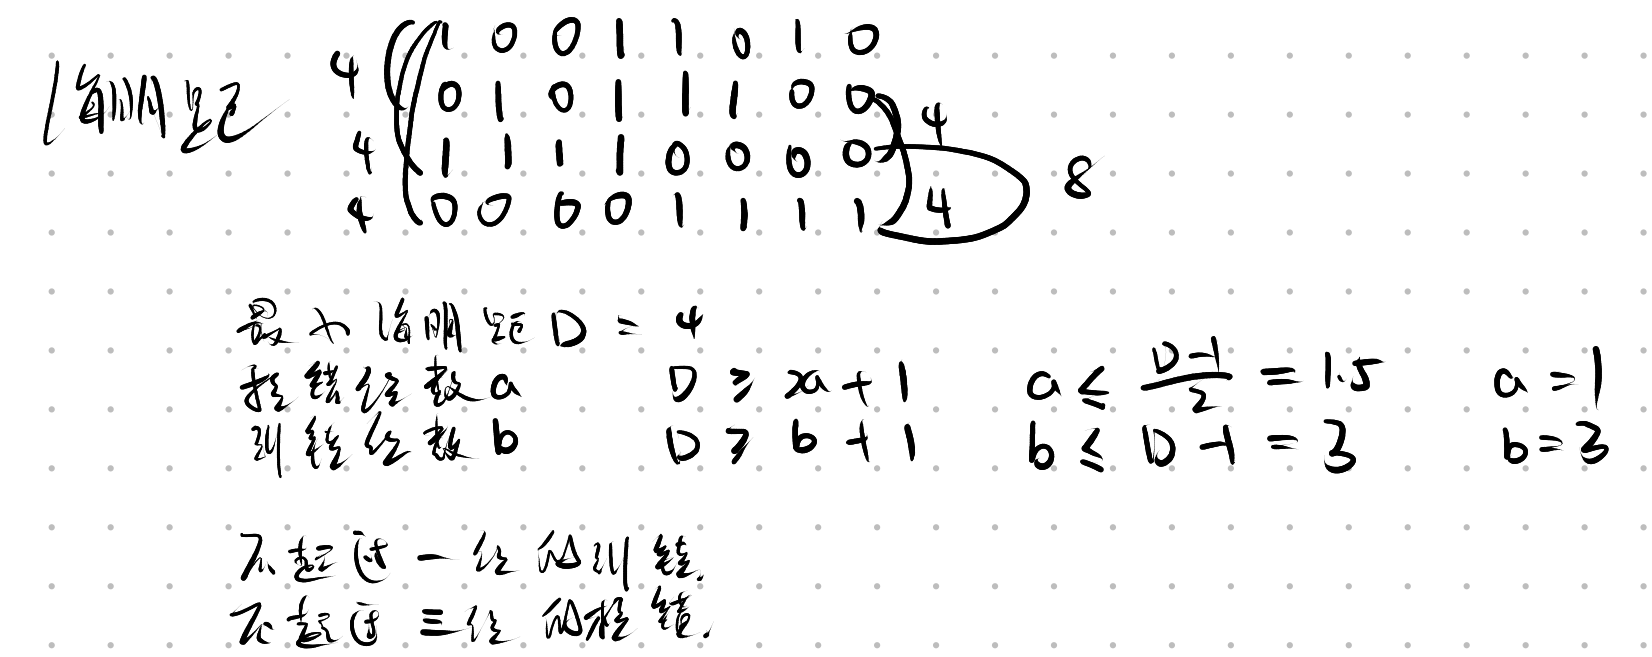 海明距
4 1 0 0 1 1 0 1 0
0 1 0 1 1 1 0 0 4
4 1 1 1 1 0 0 0 0 8
4 0 0 0 0 1 1 1 1 4
最小海明距 D = 4
检错位数 a D ≥ 2a + 1 a ≤ (D-1)/2 = 1.5 a = 1
纠错位数 b D ≥ b + 1 b ≤ D-1 = 3 b = 3
不超过一位的纠错.
不超过三位的检错.